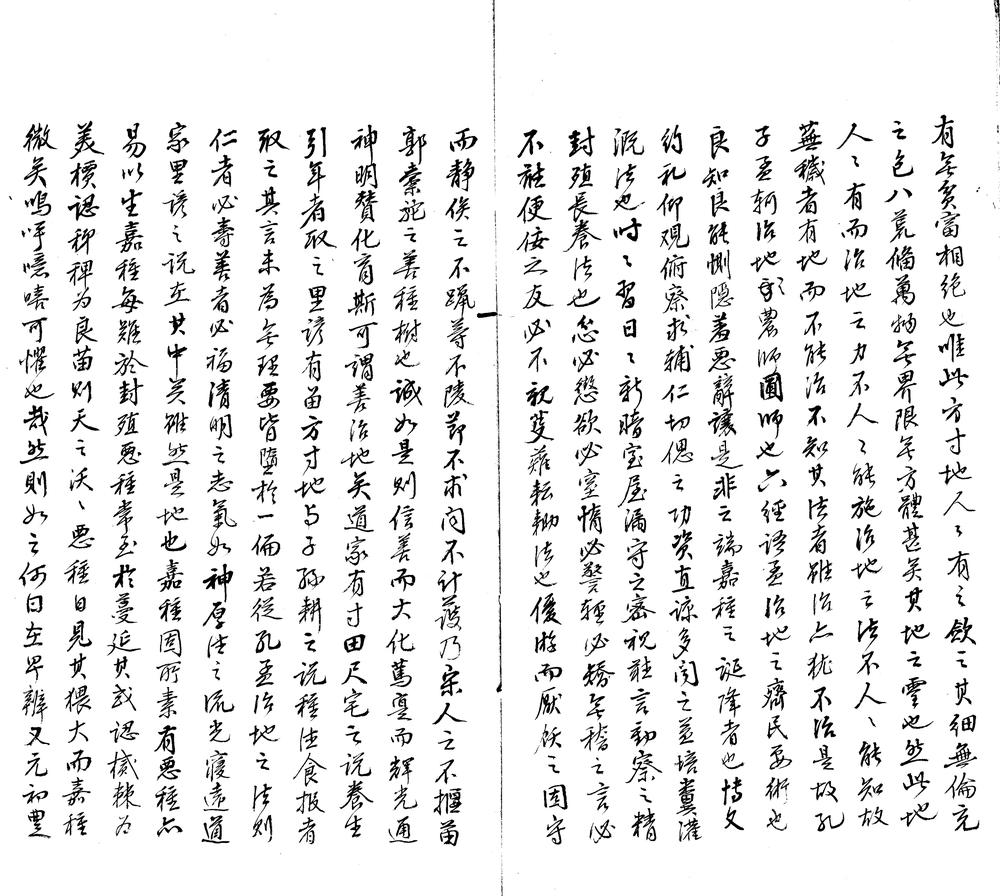 有無貧富相絶也唯此方寸地人々有之斂之其細無倫充
之包八荒偹萬物無界限無方體甚矣其地之靈也然此地
人々有而治地之力不人々能施治地之法不人々能知故
蕪穢者有地而不能治不知其法者雖治亦猶不治是故孔
子孟軻治地之農師圃師也六經語孟治地之齊民要術也
良知良能惻隱羞惡辭讓是非之端嘉種之誕降者也博文
約礼仰觀俯察求輔仁切偲之功資直諒多聞之益培糞灌
溉法也時々習日々新暗室屋漏守之密視聽言動察之精
封殖長養法也忿必懲欲必窒惰必警輕必矯無稽之言必
不聽便佞之友必不親芟薙耘耡法也優游而厭飫之固守
而静俟之不躐等不陵節不求問不計獲乃宋人之不揠苗
郭橐駝之善種樹也誠如是則信善而大化篤實而輝光通
神明賛化育斯可謂善治地矣道家有寸田尺宅之説養生
引年者取之里諺有留方寸地与子孫耕之説種德食報者
取之其言未為無理要皆墮於一偏若從孔孟治地之法則
仁者必壽善者必福清明之志氣如神厚德之流光寖遠道
家里諺之説在其中矣雖然是地也嘉種固所素有惡種亦
易以生嘉種每難於封殖惡種常至於蔓延其或認樲棘為
美檟認稊稗為良苗則天之沃々惡種日見其猥大而嘉種
微矣嗚呼噫嘻可懼也哉然則如之何曰在早辨又元初豊